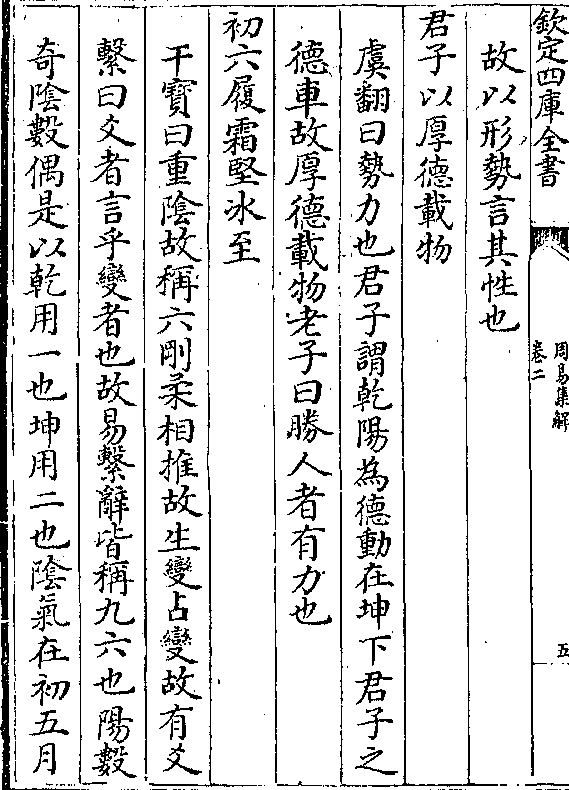 欽定四庫全書
周易集解
卷二
五
故以形勢言其性也
君子以厚德載物
虞翻曰勢力也君子謂乾陽為德動在坤下君子之
德車故厚德載物老子曰勝人者有力也
初六履霜堅冰至
干寶曰重陰故稱六剛柔相推故生變占變故有爻
繫曰爻者言乎變者也故易繫辭皆稱九六也陽數
奇陰數偶是以乾用一也坤用二也陰氣在初五月